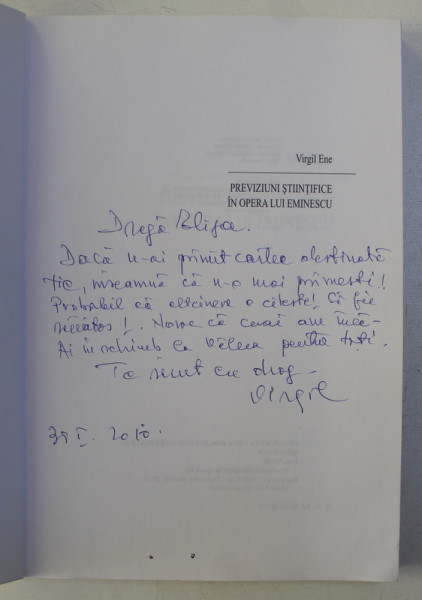 Virgil Ene
PREVIZIUNI ȘTIINȚIFICE
ÎN OPERA LUI EMINESCU
Dragă
Dacă n-ai primit cartea destinată
ție, înseamnă că n-o mai primești!!
Probabil că altcineva o citește! Să fie
sănătos! Noroc că mai am încă-
Ai în schimb pentru toți.
Te sărut cu drag -
Virgil
I. 2010.